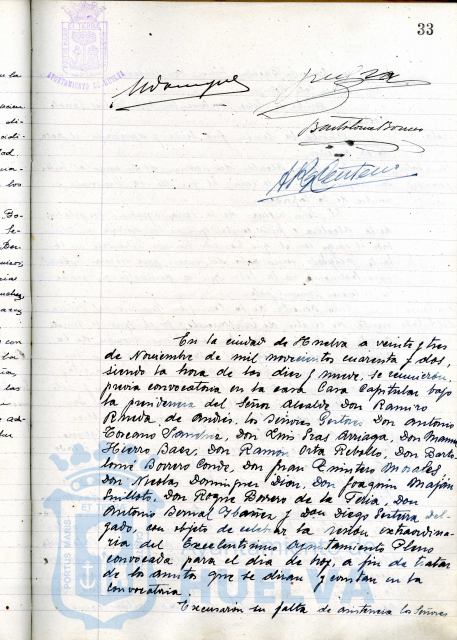 33
AYUNTAMIENTO DE HUELVA
Bartolomé Borrero
En la ciudad de Huelva a veinte y tres
de Noviembre de mil novecientos cuarenta y dos,
siendo la hora de las diez y nueve, se reunieron,
previa convocatoria en la casa Casa Capitular bajo
la presidencia del Señor Alcalde Don Ramiro
Rueda de Andrés, los Señores Gestores Don Antonio
Toscano Sanchez, Don Luis Gras Arriaga, Don Manuel
Hierro Baez, Don Ramón Orta Rebollo, Don Barto-
lomé Borrero Conde, Don Juan Quintero Morales,
Don Nicolas Dominguez Diaz, Don Joaquin
Guillot, Don Roque Borrero de la Feria, Don
Antonio Bernal Ybañez y Don Diego Del-
gado, con objeto de celebrar la sesión extraordina-
ria del Excelentisimo Ayuntamiento Pleno
convocada para el dia de hoy, a fin de tratar
de los asuntos que se diran y constan en la
convocatoria.
Excusaron su falta de asistencia los Señores
PORTUS MARIS
HUELVA